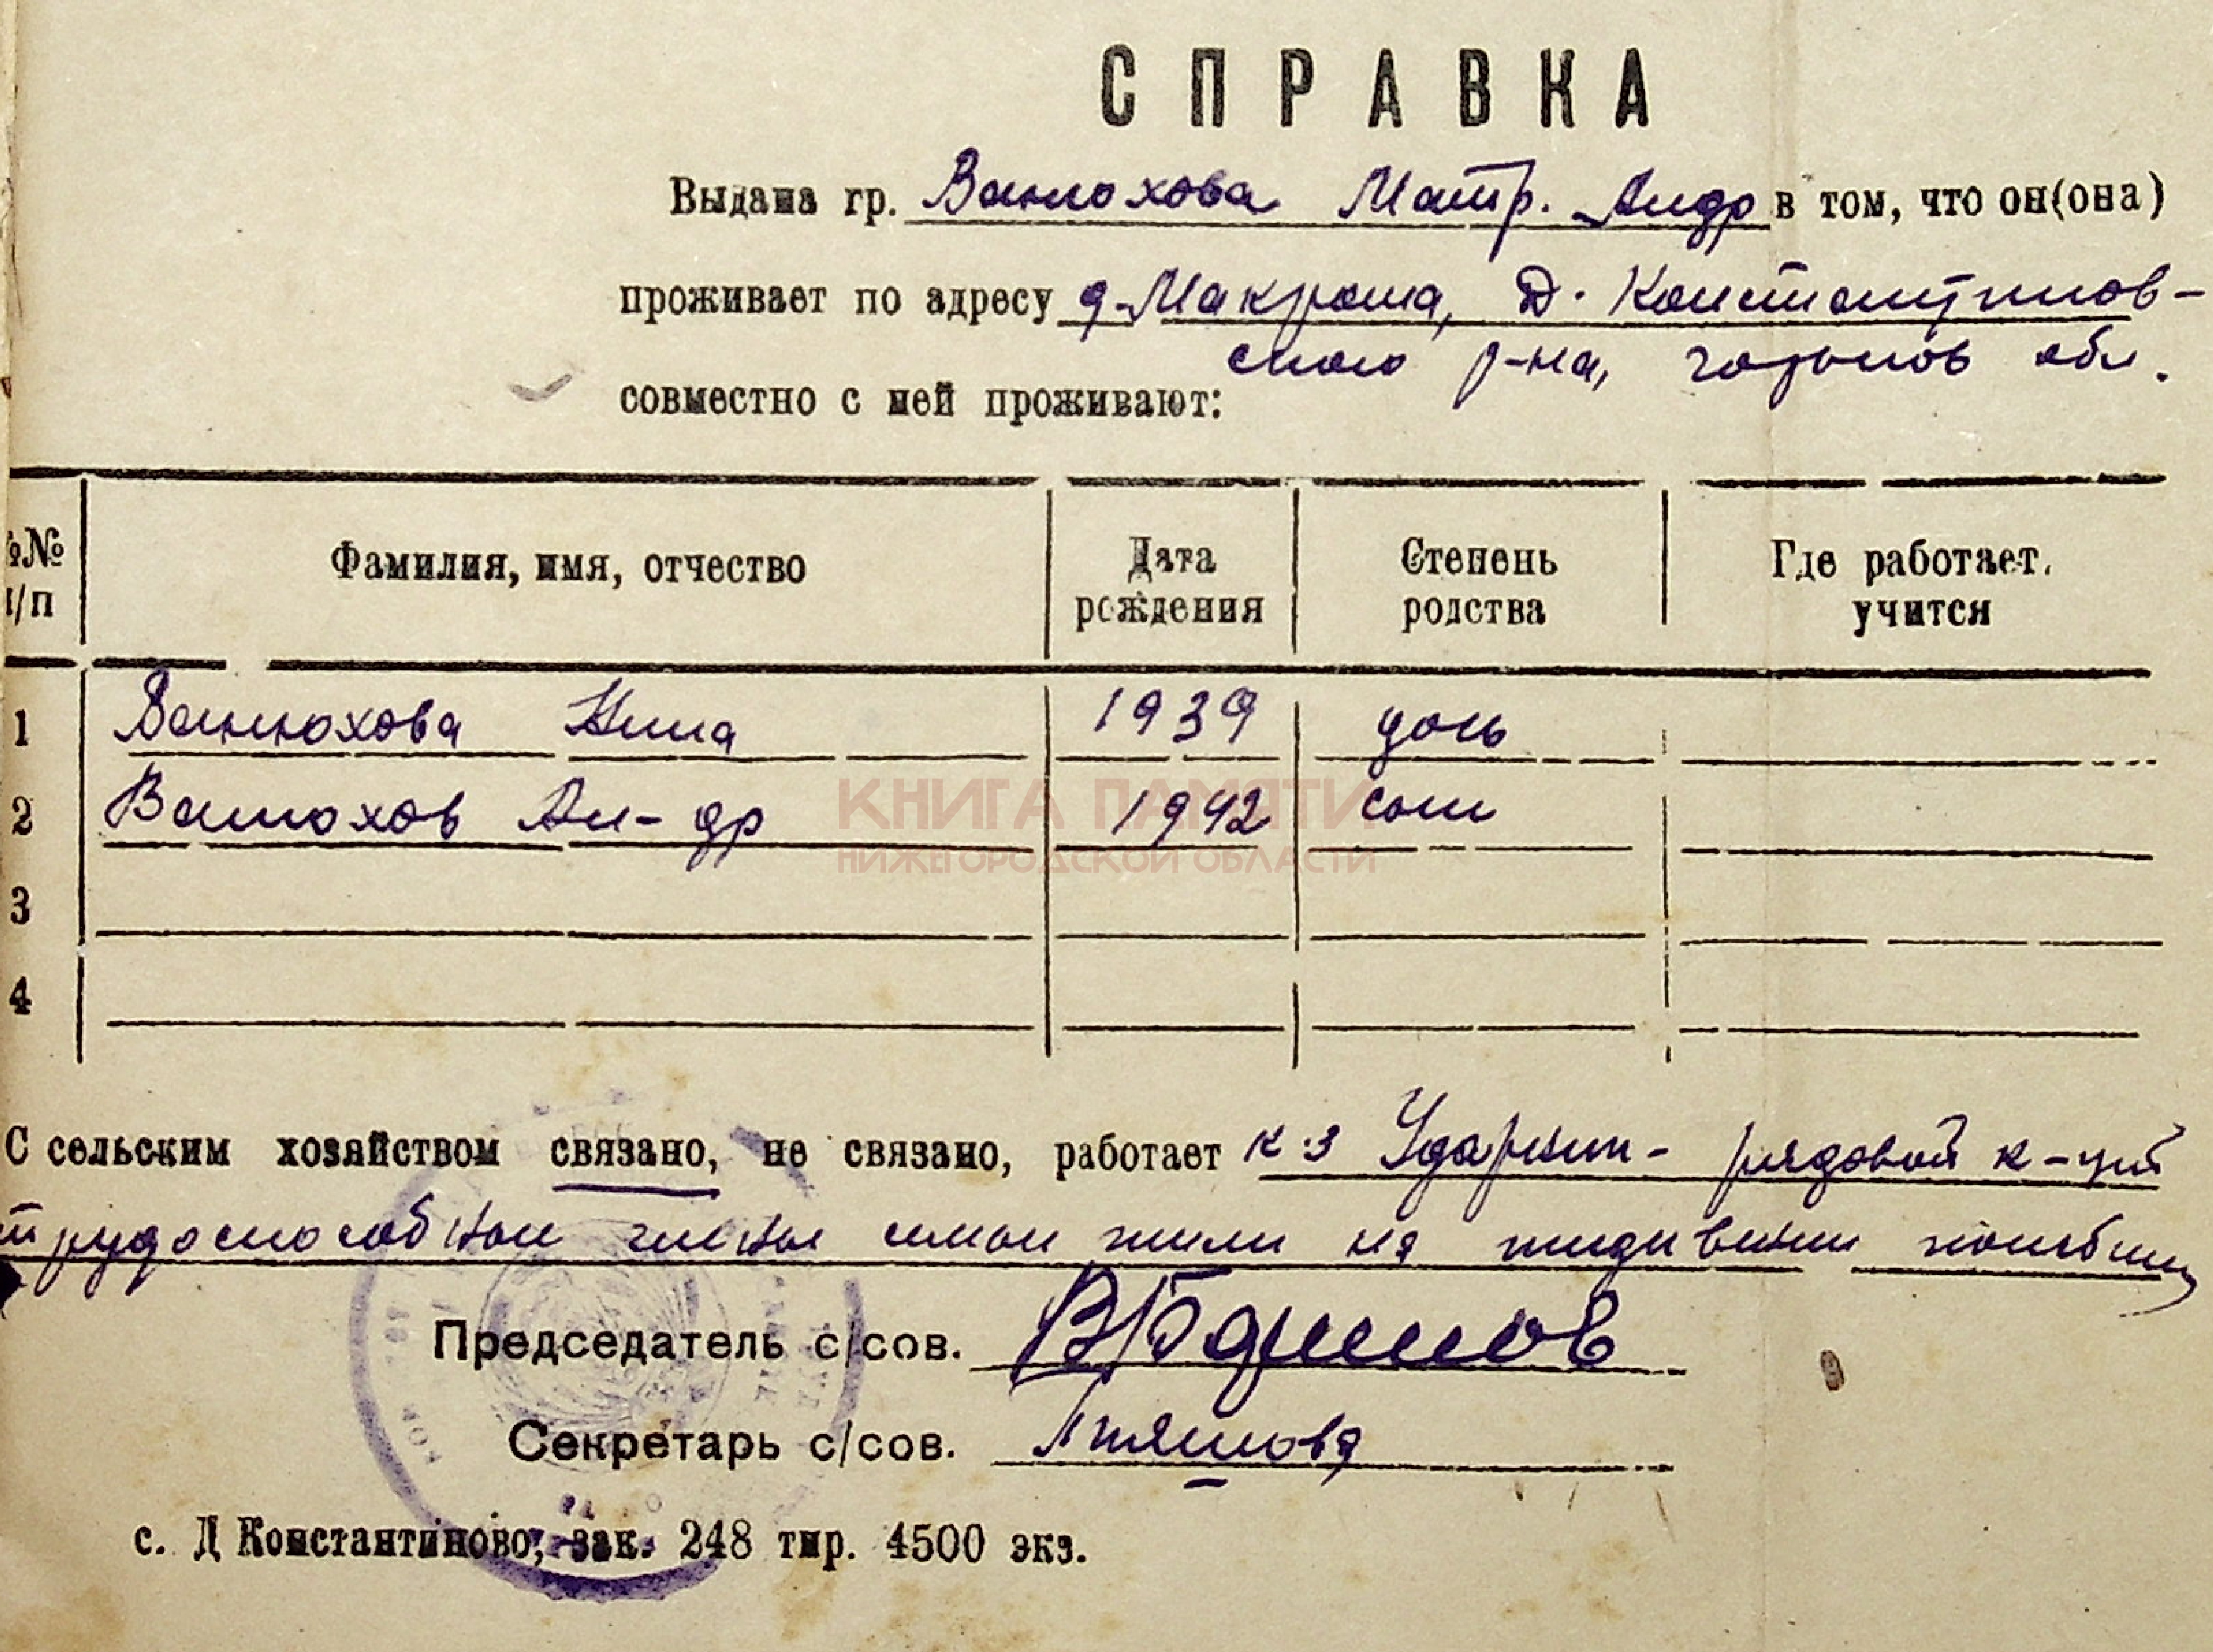 СПРАВКА
Выдана гр. Ванюхова Матр. Андр в том, что он(она)
проживает по адресу д. Макраша, Д. Константинов-
ского р-на, горьков обл.
совместно с ней проживают:
№№ п/п Фамилия, имя, отчество Дата рождения Степень родства Где работает, учится
1 Ванюхова Нина 1939 дочь
2 Ванюхов Ал-др 1942 сын
КНИГА ПАМЯТИ
НИЖЕГОРОДСКОЙ ОБЛАСТИ
3
4
С сельским хозяйством связано, не связано, работает к-з Ударник - рядовой к-цей
трудоспособные члены семьи жили на иждивении погибш
Председатель с/сов.
Секретарь с/сов.
с. Д Константиново, зак. 248 тир. 4500 экз.